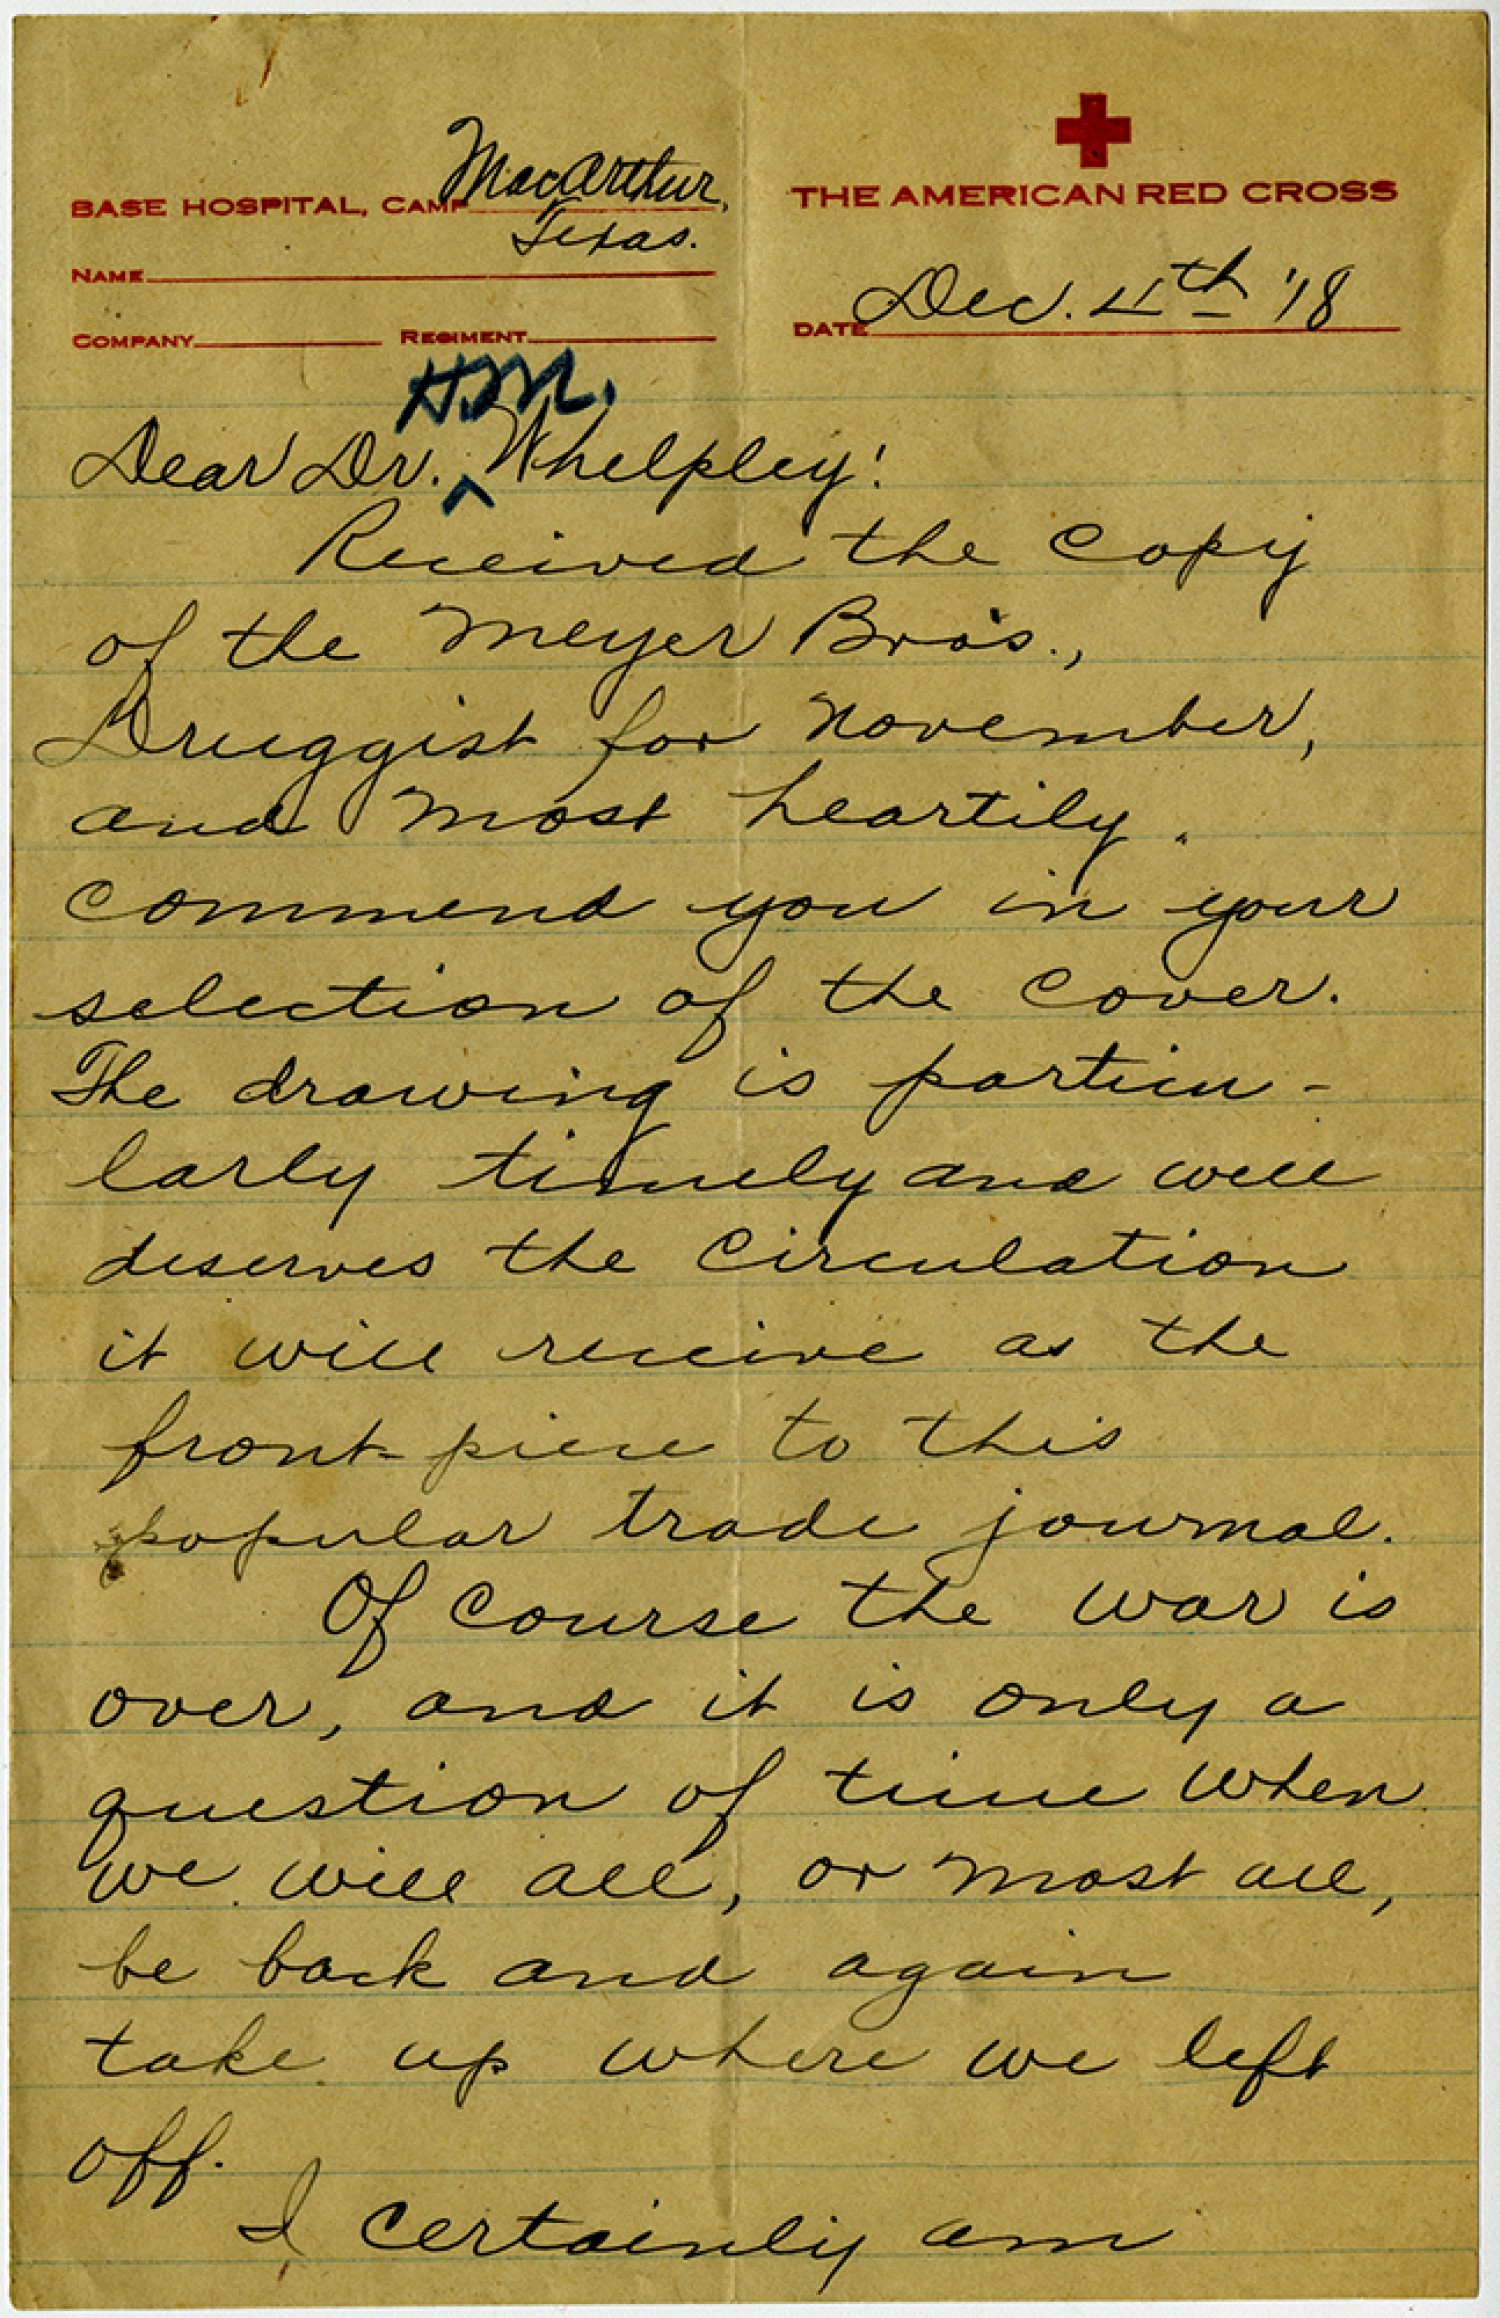 BASE HOSPITAL, CAMP MacArthur,
Texas.
NAME
COMPANY REGIMENT
THE AMERICAN RED CROSS
DATE Dec. 4th '18
H.M.
Dear Dr. ^ Whelpley!
Received the copy
of the Meyer Bro's.,
Druggist for November,
and most heartily
commend you in your
selection of the cover.
The drawing is particu-
larly timely and well
deserves the circulation
it will receive as the
front-piece to this
popular trade journal.
Of course the war is
over, and it is only a
question of time when
we will all, or most all,
be back and again
take up where we left
off.
I certainly am